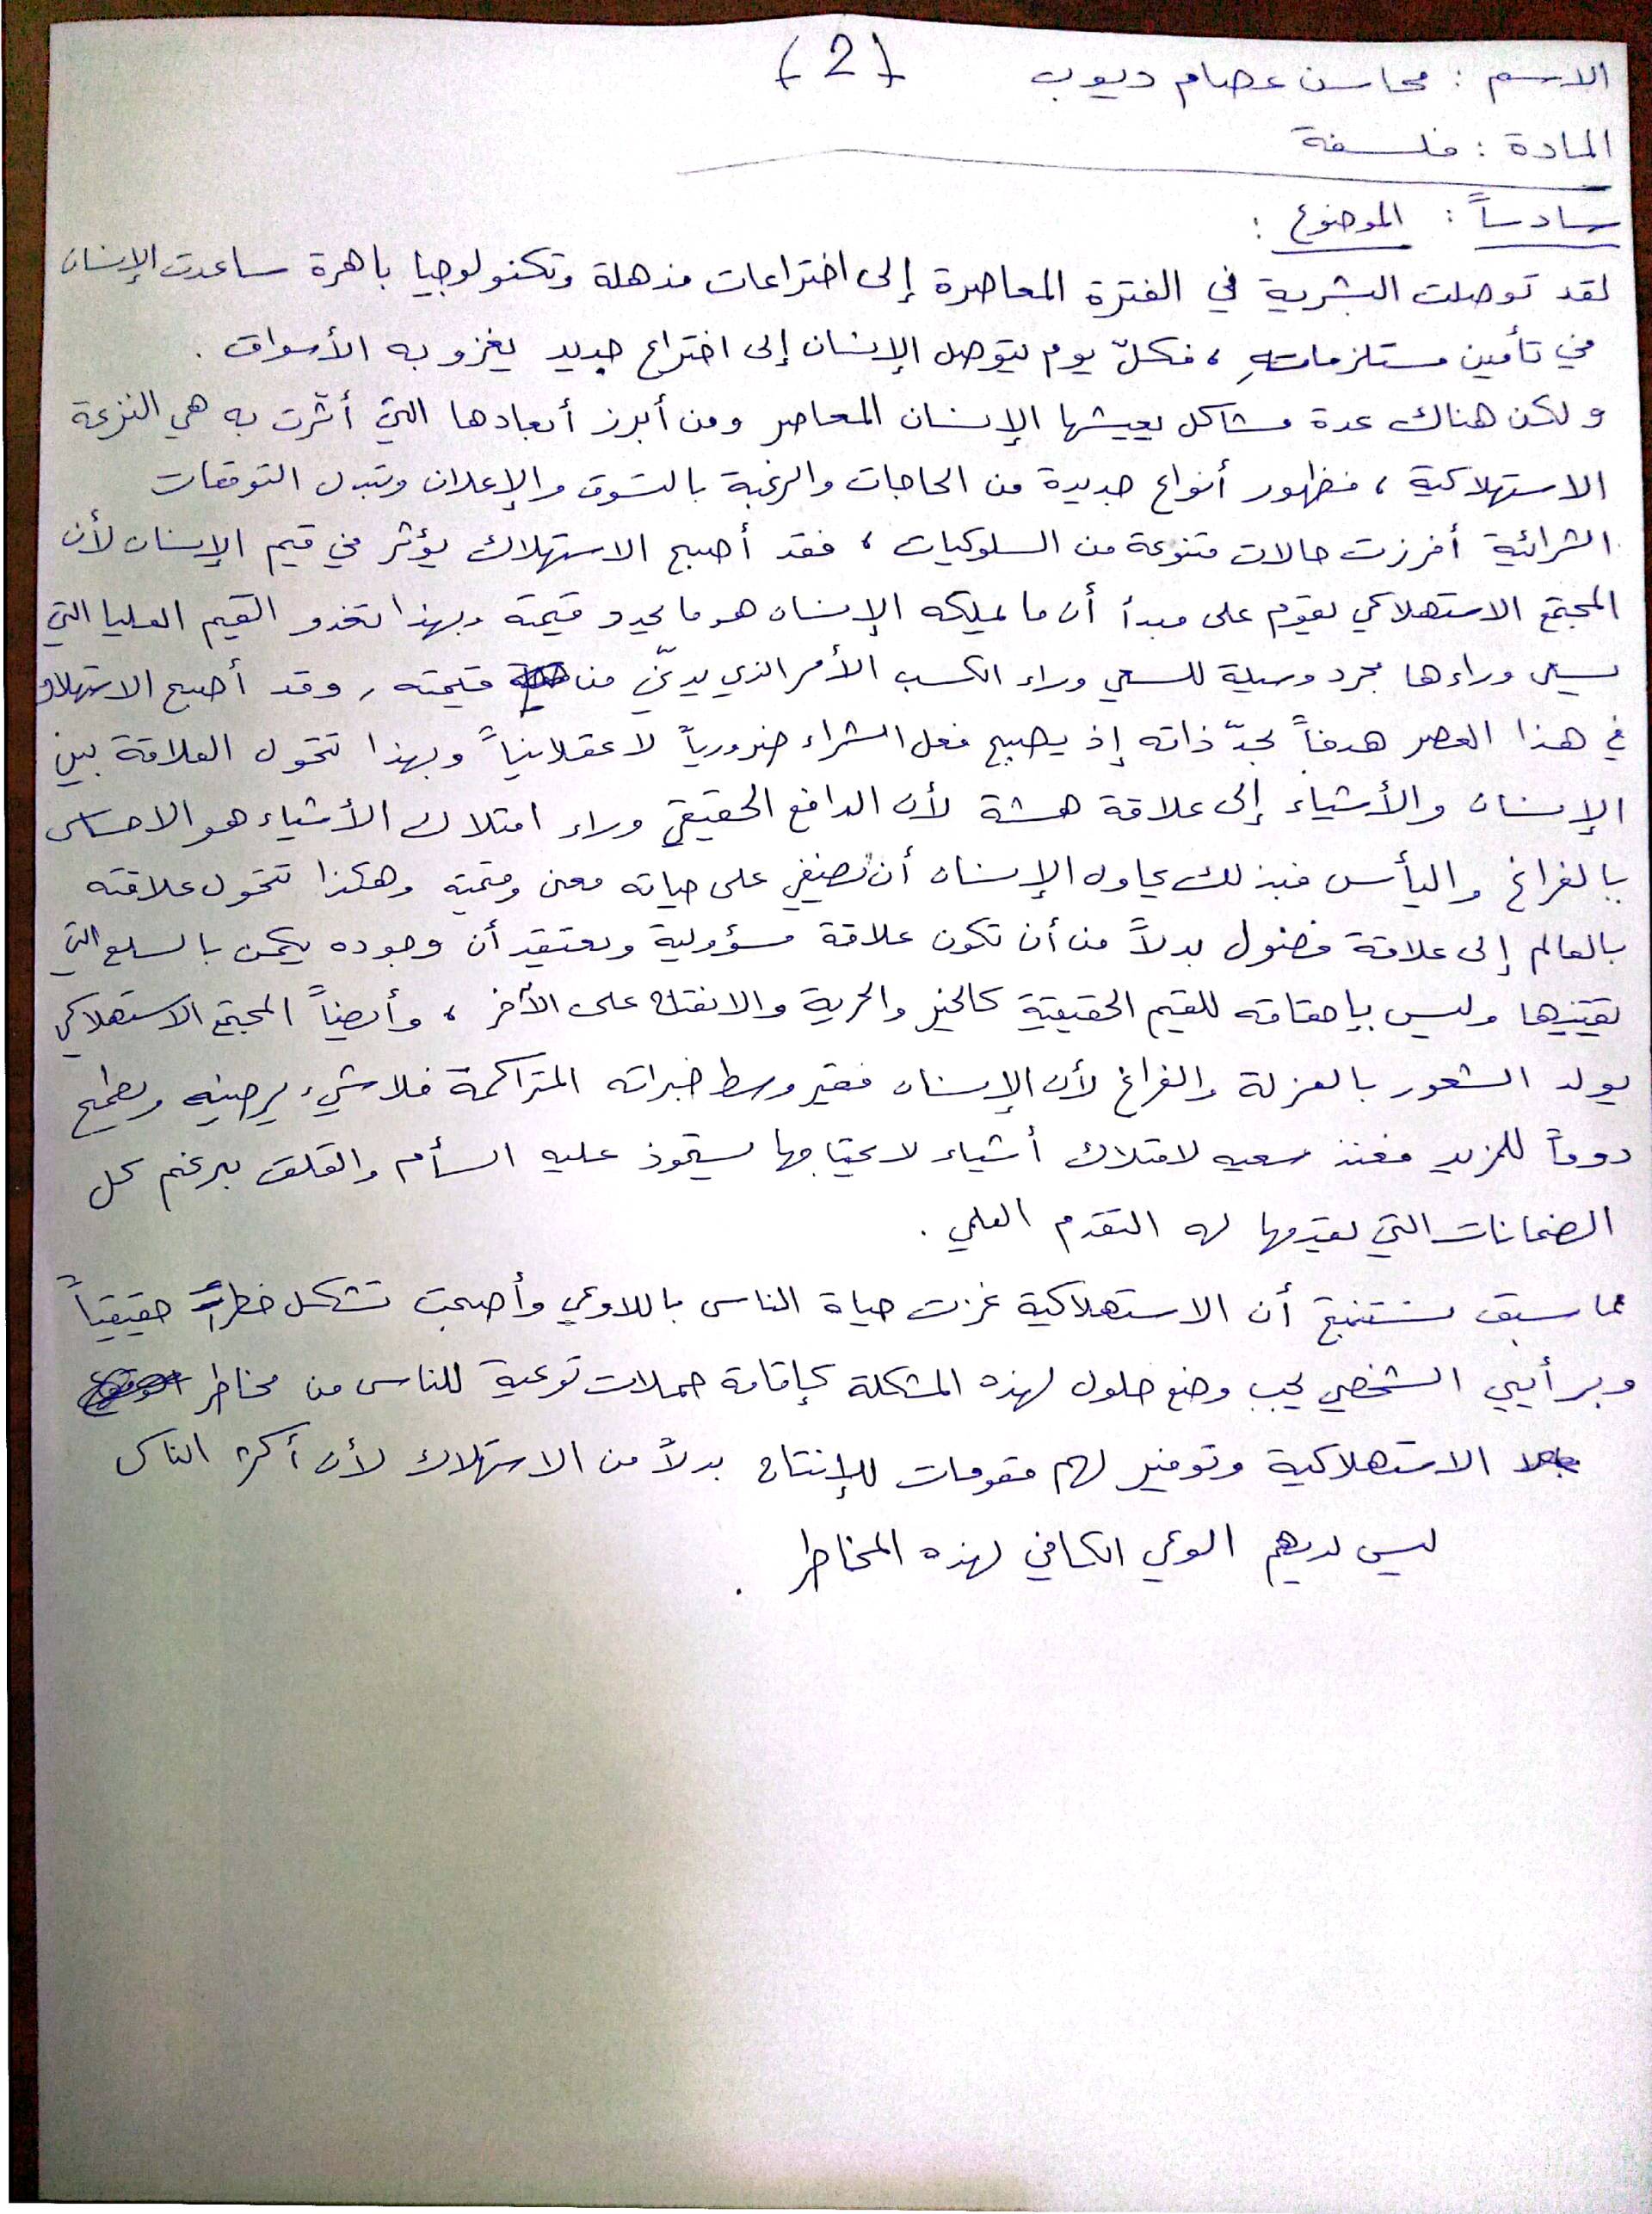 (2)
الاسم : محاسن عصام ديوب
المادة : فلسفة
سادساً : الموضوع :
لقد توصلت البشرية في الفترة المعاصرة إلى اختراعات مذهلة وتكنولوجيا باهرة ساعدت الإنسان
في تأمين مستلزماتهِ ، فكلّ يوم يتوصل الإنسان إلى اختراع جديد يغزو به الأسواق .
ولكن هناك عدة مشاكل يعيشها الإنسان المعاصر ومن أبرز أبعادها التي أثّرت به هي النزعة
الاستهلاكية ، فظهور أنواع جديدة من الحاجات والرغبة بالتسوق والإعلان وتبدل التوقعات
الشرائية أفرزت حالات متنوعة من السلوكيات ، فقد أصبح الاستهلاك يؤثر في قيم الإنسان لأن
المجتمع الاستهلاكي يقوم على مبدأ أن ما يملكه الإنسان هو ما يحدد قيمته وبهذا تغدو القيم العليا التي
يسعى وراءها مجرد وسيلة للسعي وراء الكسب الأمر الذي يدنّي من قيمته ، وقد أصبح الاستهلاك
في هذا العصر هدفاً بحدّ ذاته إذ يصبح فعل الشراء ضرورياً لا عقلانياً وبهذا تتحول العلاقة بين
الإنسان والأشياء إلى علاقة هشة لأن الدافع الحقيقي وراء امتلاك الأشياء هو الاحساس
بالفراغ واليأس فبذلك يحاول الإنسان أن يضفي على حياته معنى وقيمة وهكذا تتحول علاقته
بالعالم إلى علاقة فضول بدلاً من أن تكون علاقة مسؤولية ويعتقد أن وجوده يكمن بالسلع التي
يقتنيها وليس بإحقاقه للقيم الحقيقية كالخير والحرية والانفتاح على الآخر ، وأيضاً المجتمع الاستهلاكي
يولد الشعور بالعزلة والفراغ لأن الإنسان فقير وسط خبراته المتراكمة فلا شيء يرضيه ويطمح
دوماً للمزيد فعند سعيه لامتلاك أشياء لا يحتاجها يستحوذ عليه السأم والقلق برغم كل
الضمانات التي يقدمها له التقدم العلمي .
مما سبق نستنتج أن الاستهلاكية غزت حياة الناس باللاوعي وأصبحت تشكل خطراً حقيقياً
وبرأيي الشخصي يجب وضع حلول لهذه المشكلة كإقامة حملات توعية للناس من مخاطر
الاستهلاكية وتوفير لهم مقومات للإنتاج بدلاً من الاستهلاك لأن أكثر الناس
ليس لديهم الوعي الكافي لهذه المخاطر .